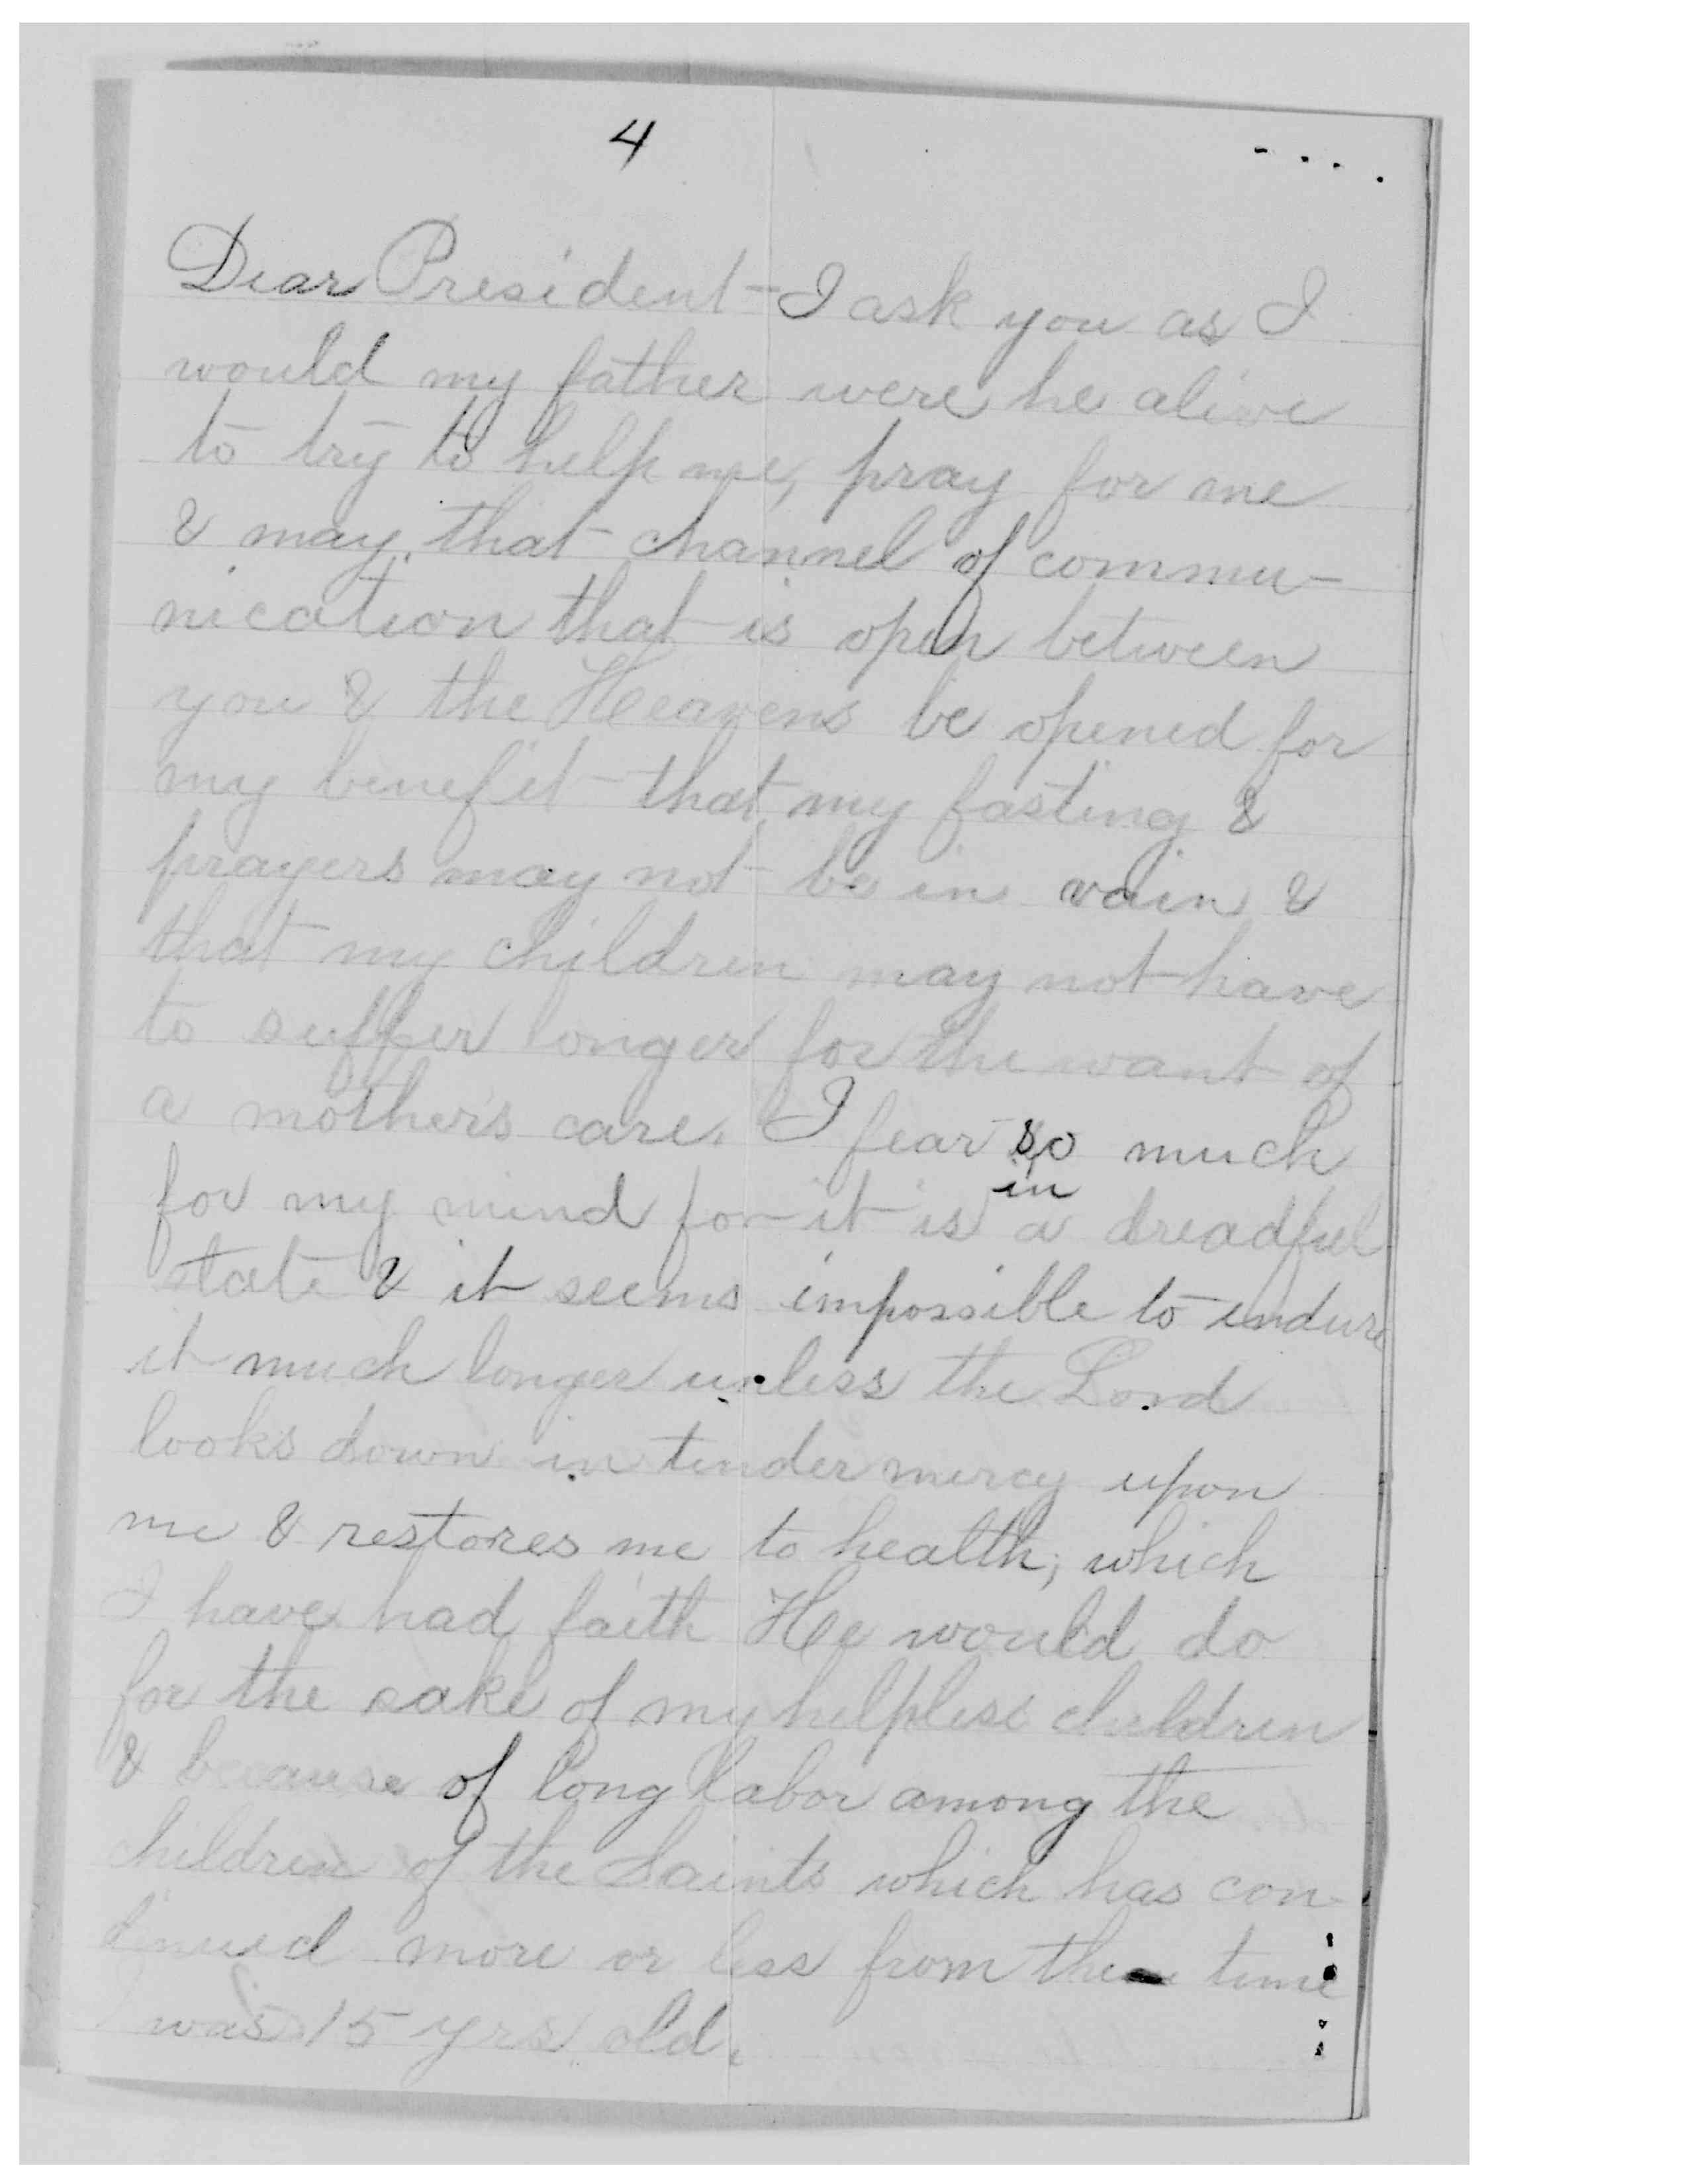 4
Dear President - I ask you as I
would my father were he alive
to try to help me, pray for me
& may that channel of commu-
nication that is open between
you & the Heavens be opened for
my benefit that my fasting &
prayers may not be in vain &
that my children may not have
to suffer longer for the want of
a mother's care. I fear so much
in
for my mind for it is a dreadful
state & it seems impossible to endure
it much longer unless the Lord
looks down in tender mercy upon
me & restores me to health, which
I have had faith He would do
for the sake of my helpless children
& because of long labor among the
children of the Saints which has con-
tinued more or less from the time
I was 15 yrs old.